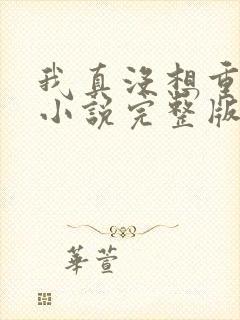 我真没想重
小说完整版
華萱